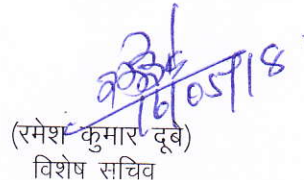 16/05/18
(रमेश कुमार दूबे)
विशेष सचिव